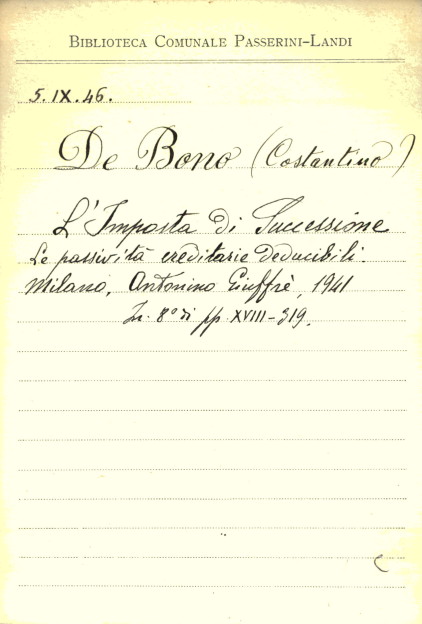 BIBLIOTECA COMUNALE PASSERINI-LANDI
5.IX.46.
De Bono (Costantino)
L'Imposta di Successione
Le passività ereditarie deducibili.
Milano, Antonino Giuffrè, 1941
In 8° di pp. XVIII-319.